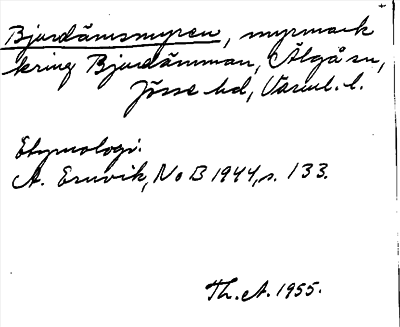 Bjurdämsmyren, myrmark
kring Bjurdämman, Älgå sn,
Jösse hd, Värml. l.
Etymologi:
A. Ernvik, NoB 1944, s. 133.
Th. A. 1955.